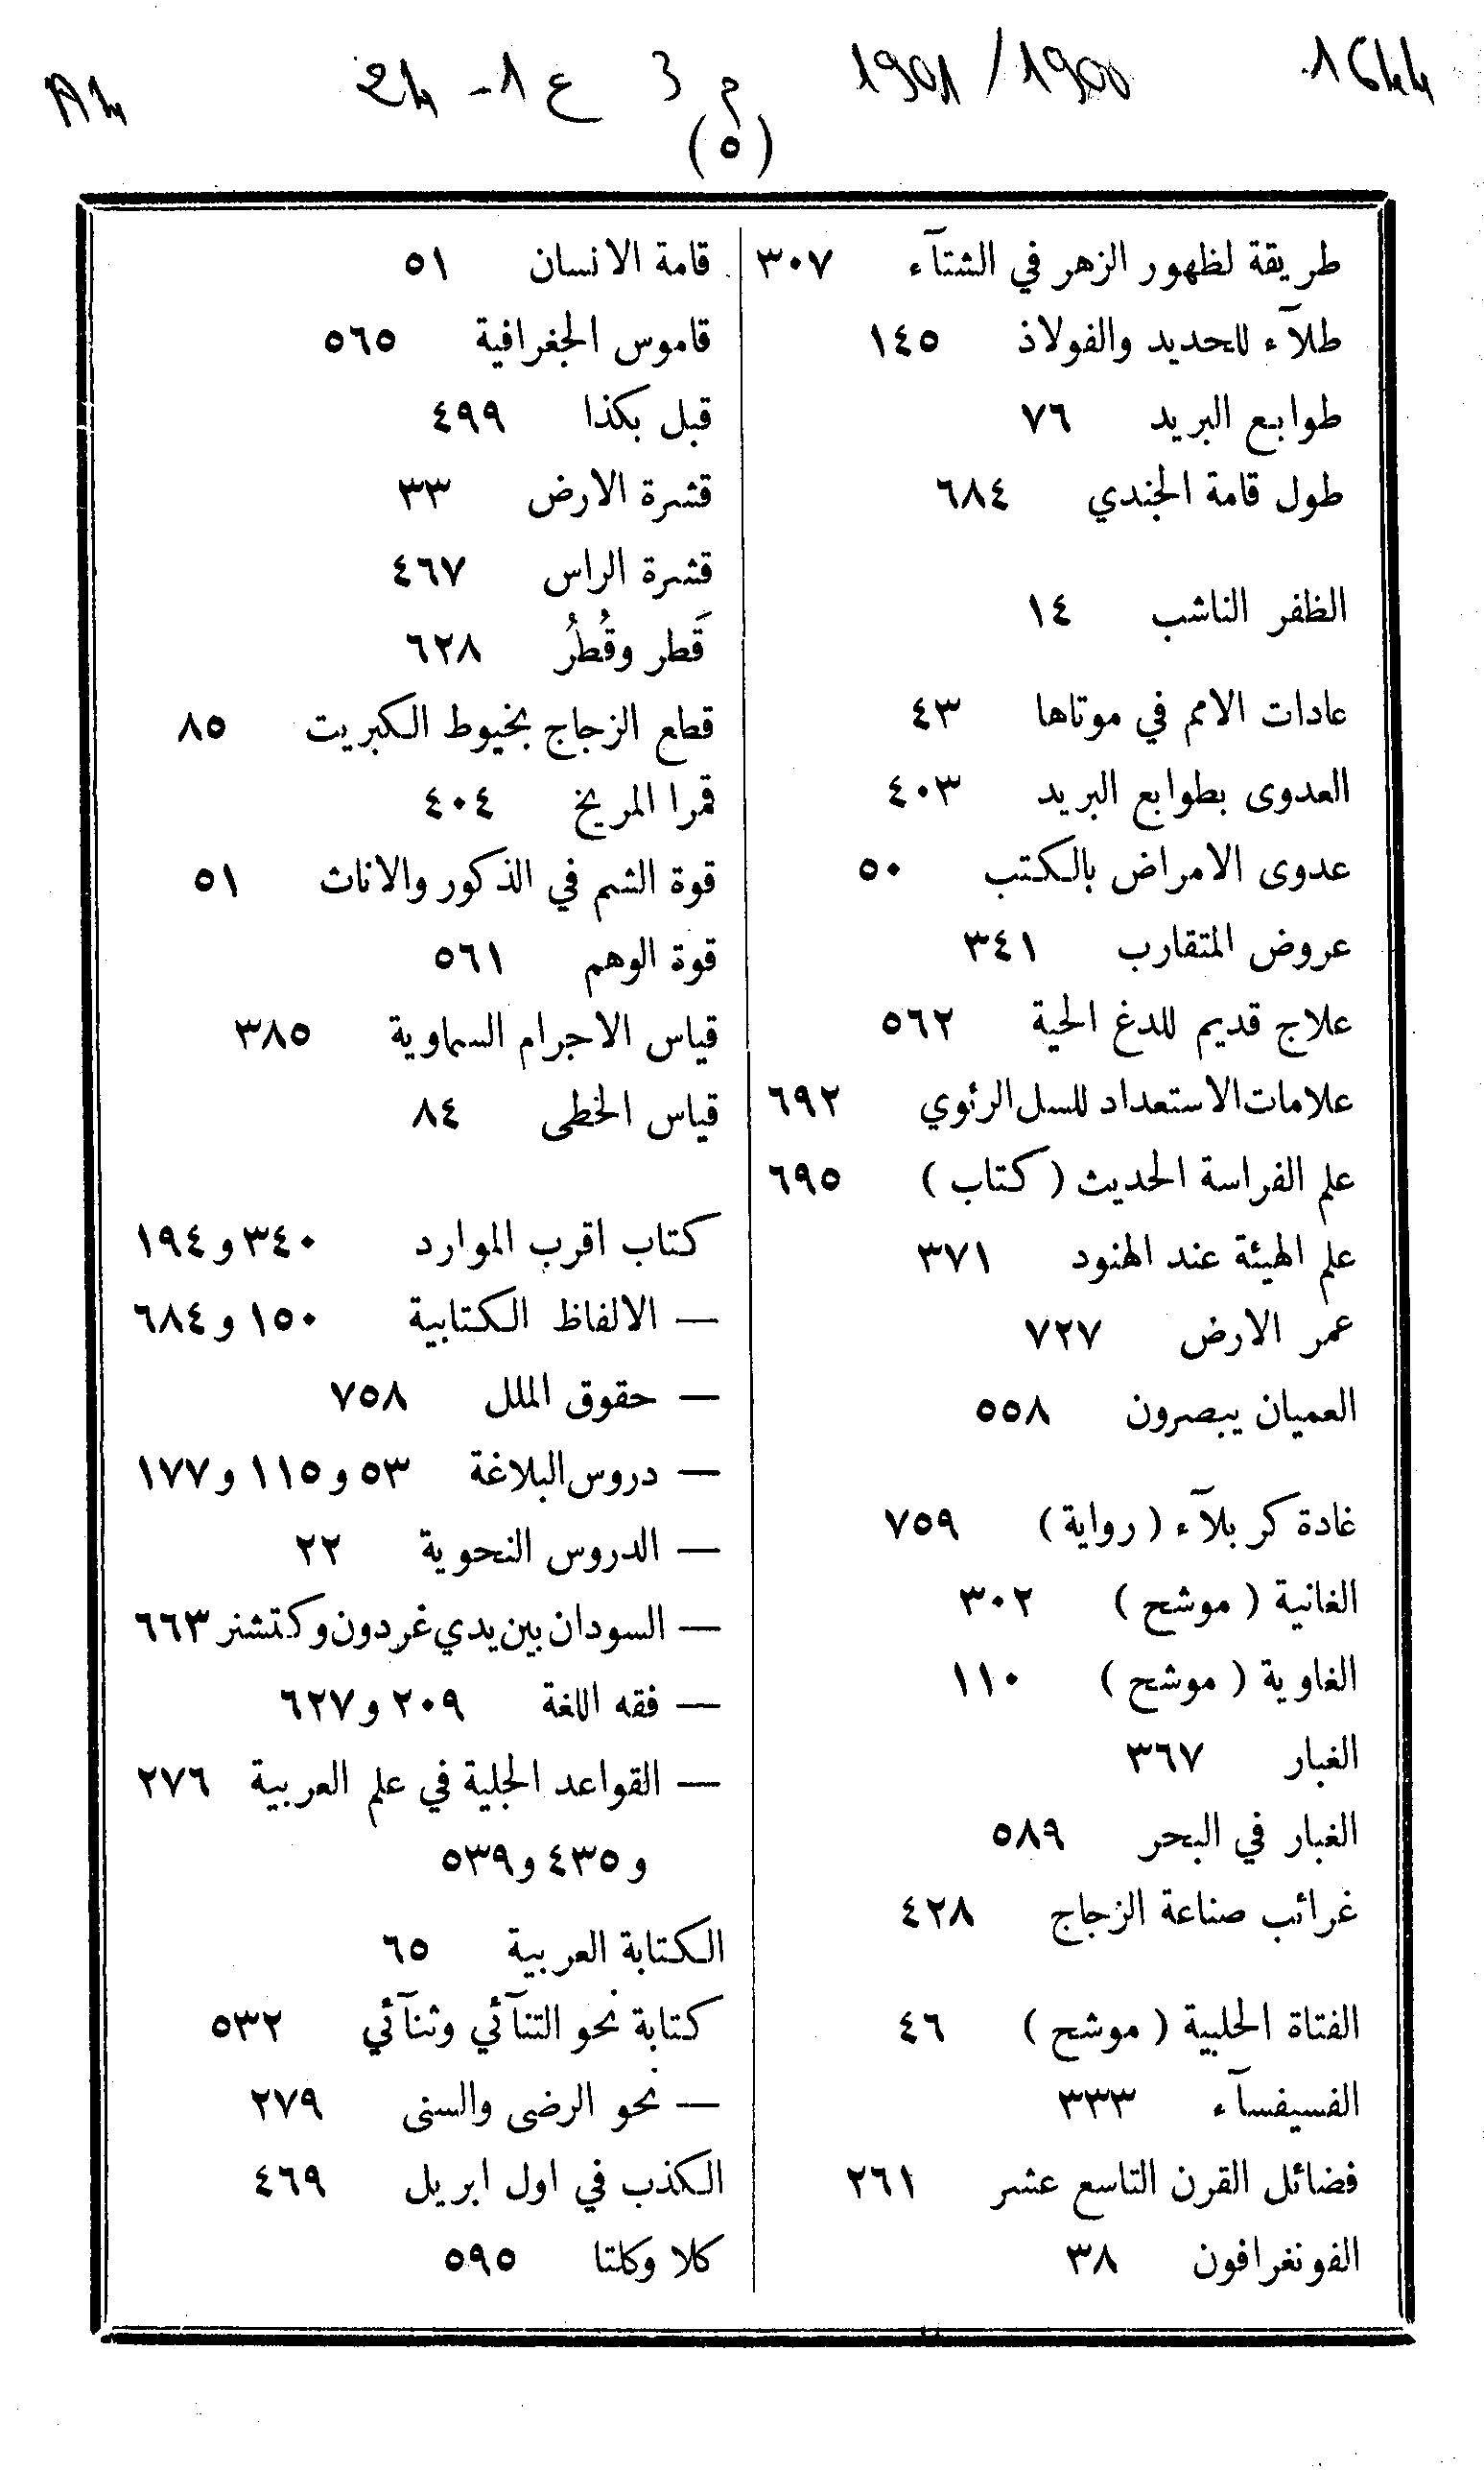 1644
1901/1900
م 3 ع 1-24
A4
(٥)
طريقة لظهور الزهر في الشتآء ٣٠٧
طلآء للحديد والفولاذ ١٤٥
طوابع البريد ٧٦
طول قامة الجندي ٦٨٤
الظفر الناشب ١٤
عادات الامم في موتاها ٤٣
العدوى بطوابع البريد ٤٠٣
عدوى الامراض بالكتب ٥٠
عروض المتقارب ٣٤١
علاج قديم للدغ الحية ٥٦٢
علامات الاستعداد للسل الرئوي ٦٩٢
علم الفراسة الحديث ( كتاب ) ٦٩٥
علم الهيئة عند الهنود ٣٧١
عمر الارض ٧٢٧
العميان يبصرون ٥٥٨
غادة كربلآء ( رواية ) ٧٥٩
الغانية ( موشح ) ٣٠٢
الغاوية ( موشح ) ١١٠
الغبار ٣٦٧
الغبار في البحر ٥٨٩
غرائب صناعة الزجاج ٤٢٨
الفتاة الحلبية ( موشح ) ٤٦
الفسيفسآء ٣٣٣
فضائل القرن التاسع عشر ٢٦١
الفونغرافون ٣٨
قامة الانسان ٥١
قاموس الجغرافية ٥٦٥
قبل بكذا ٤٩٩
قشرة الارض ٣٣
قشرة الراس ٤٦٧
قَطر وقُطرُ ٦٢٨
قطع الزجاج بخيوط الكبريت ٨٥
قمرا المريخ ٤٠٤
قوة الشم في الذكور والاناث ٥١
قوة الوهم ٥٦١
قياس الاجرام السماوية ٣٨٥
قياس الخطى ٨٤
كتاب اقرب الموارد ٣٤٠ و١٩٤
— الالفاظ الكتابية ١٥٠ و٦٨٤
— حقوق الملل ٧٥٨
— دروس البلاغة ٥٣ و١١٥ و١٧٧
— الدروس النحوية ٢٢
— السودان بين يدي غردون وكتشنر ٦٦٣
— فقه اللغة ٢٠٩ و٦٢٧
— القواعد الجلية في علم العربية ٢٧٦
و٤٣٥ و٥٣٩
الكتابة العربية ٦٥
كتابة نحو التنآئي وثنآئي ٥٣٢
— نحو الرضى والسنى ٢٧٩
الكذب في اول ابريل ٤٦٩
كلا وكلتا ٥٩٥